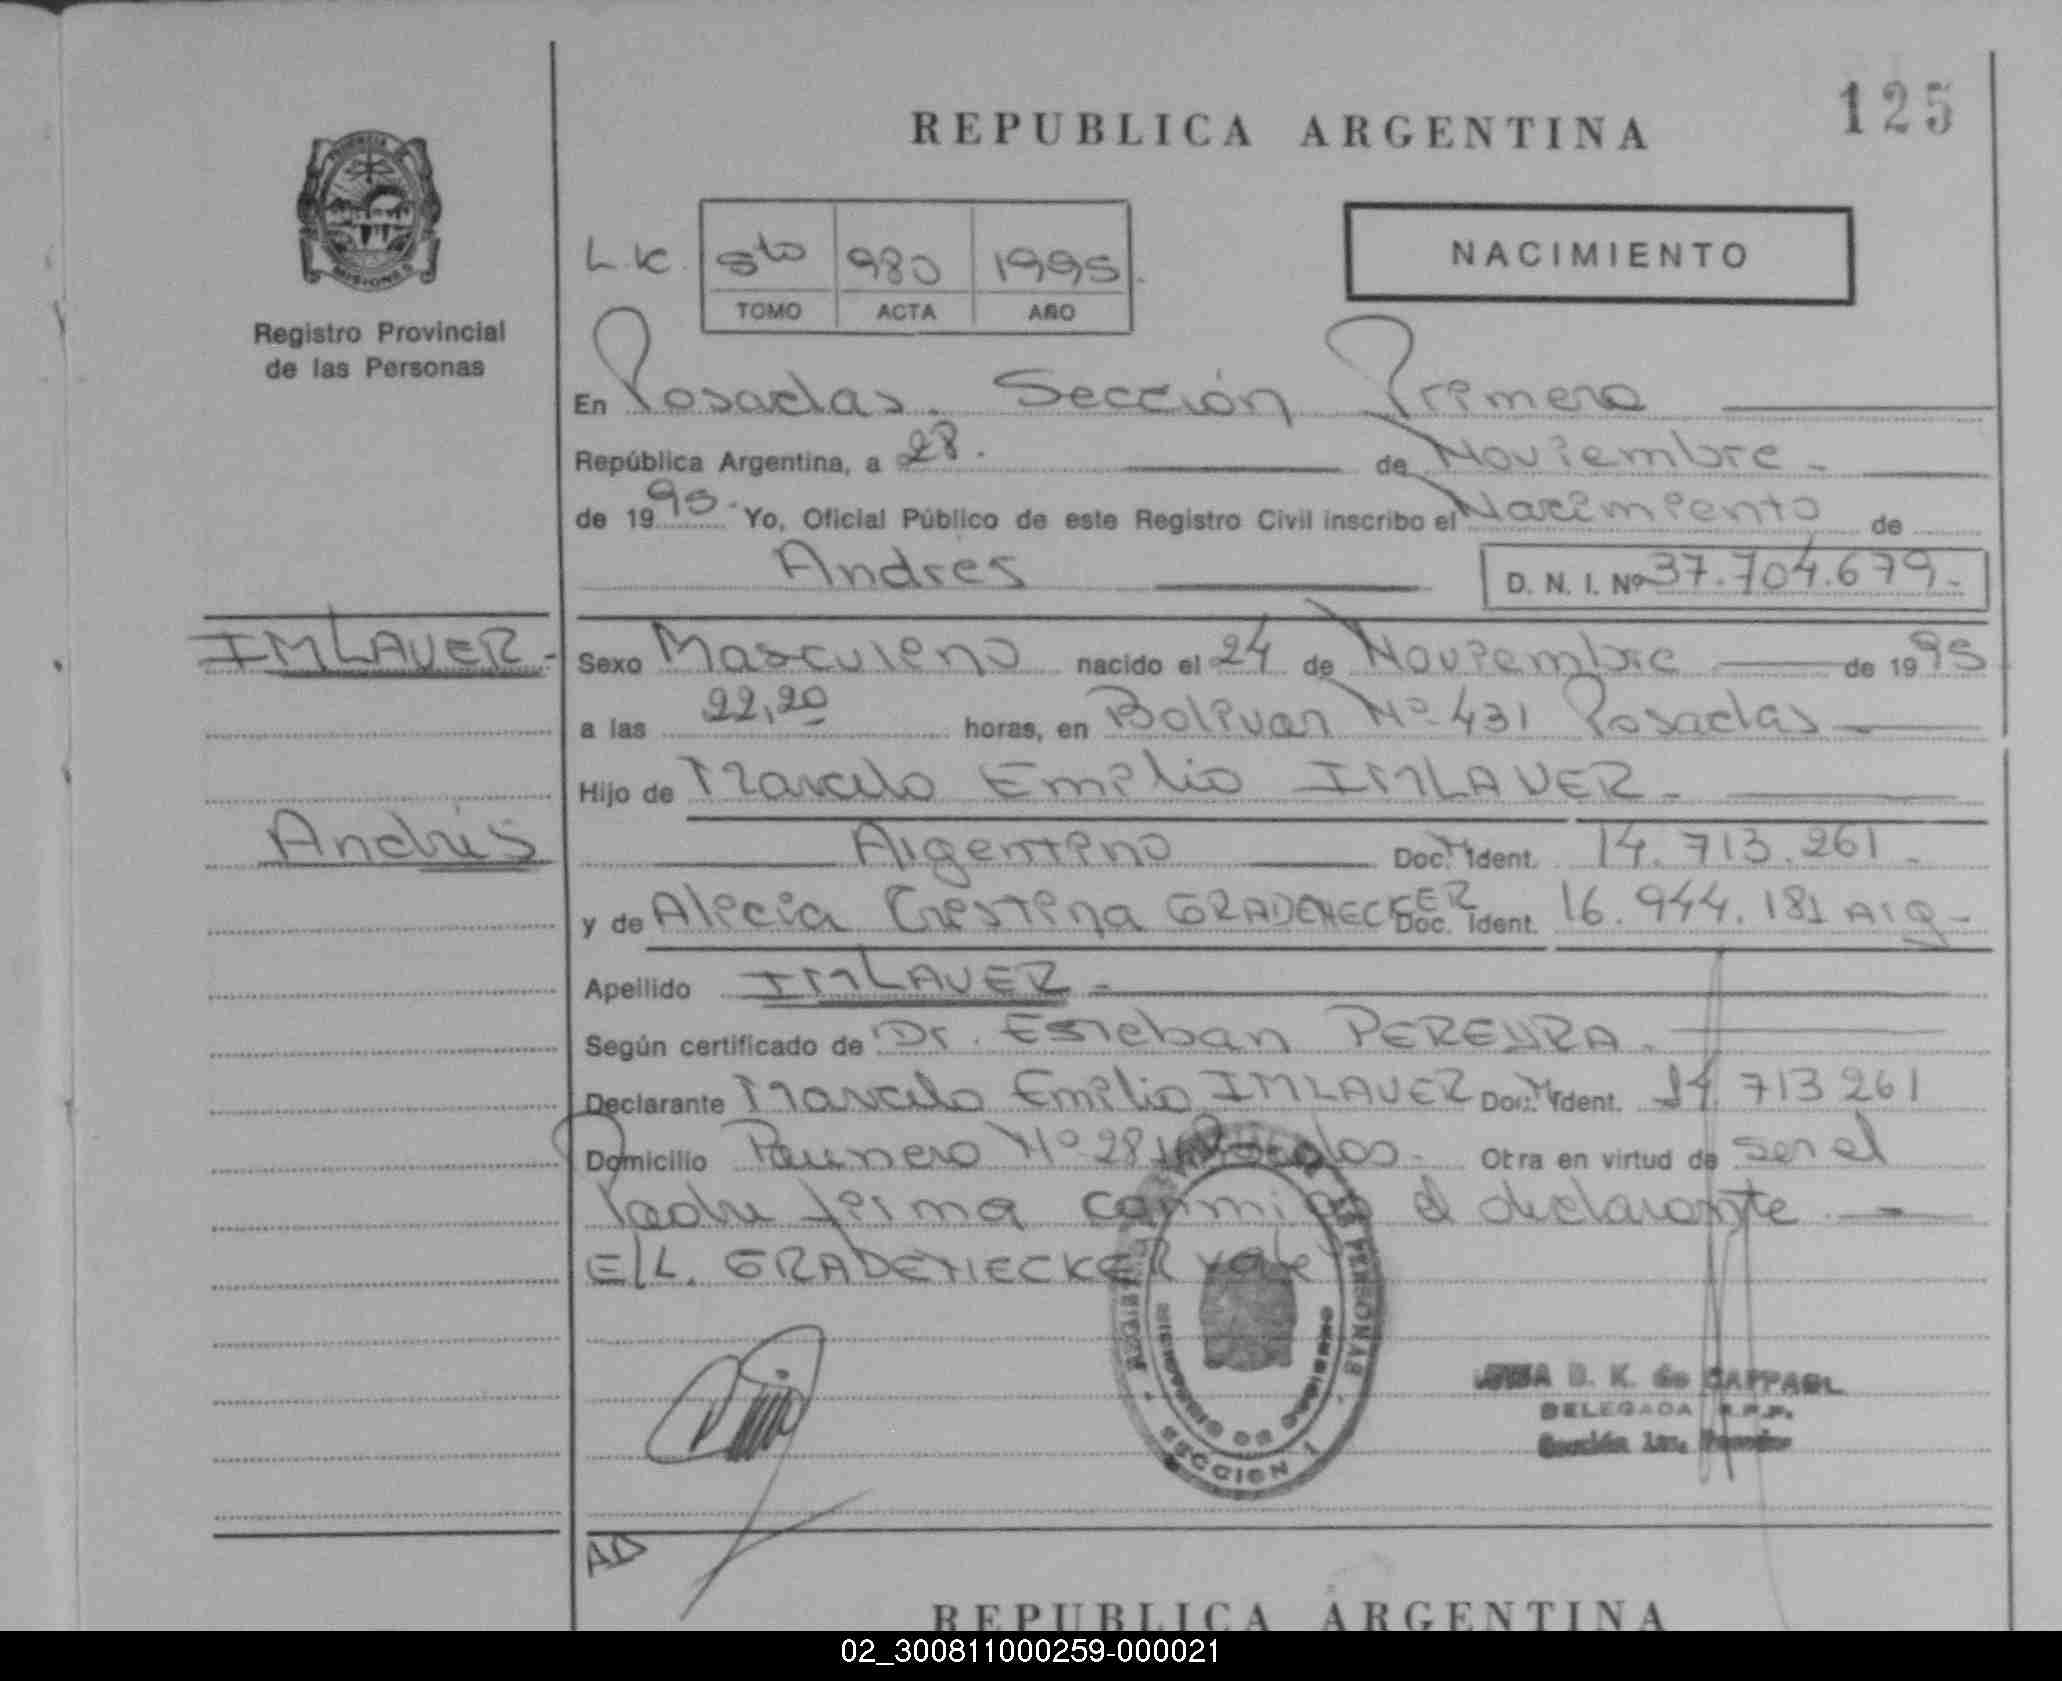 125
REPUBLICA ARGENTINA
NACIMIENTO
L.K. 5to 980 1995
TOMO ACTA AÑO
PROVINCIA DE MISIONES
Registro Provincial
de las Personas
En Posadas. Sección Primera
República Argentina, a 28. de Noviembre
de 1995. Yo, Oficial Público de este Registro Civil inscribo el Nacimiento de
Andres D. N. I. Nº 37.704.679.
IMLAUER.
Sexo Masculino nacido el 24 de Noviembre de 1995
a las 22,20 horas, en Bolivar Nº 431 Posadas
Hijo de Marcelo Emilio IMLAUER.
Andrés
Argentino Doc. Ident. 14.713.261.
y de Alicia Cristina GRADENECKER Doc. Ident. 16.944.181 Arg.
Apellido IMLAUER.
Según certificado de Dr. Esteban PEREYRA.
Declarante Marcelo Emilio IMLAUER Doc. Ident. 14 713 261
Domicilio Paunero Nº 281 Posadas. Otra en virtud de ser el
Padre firma conmigo el declarante
E/L. GRADENECKER vale
PERSONAS
SECCION 1
B. K. de
DELEGADA R.P.P.
Sección 1ra. Posadas
AD
REPUBLICA ARGENTINA
02_300811000259-000021